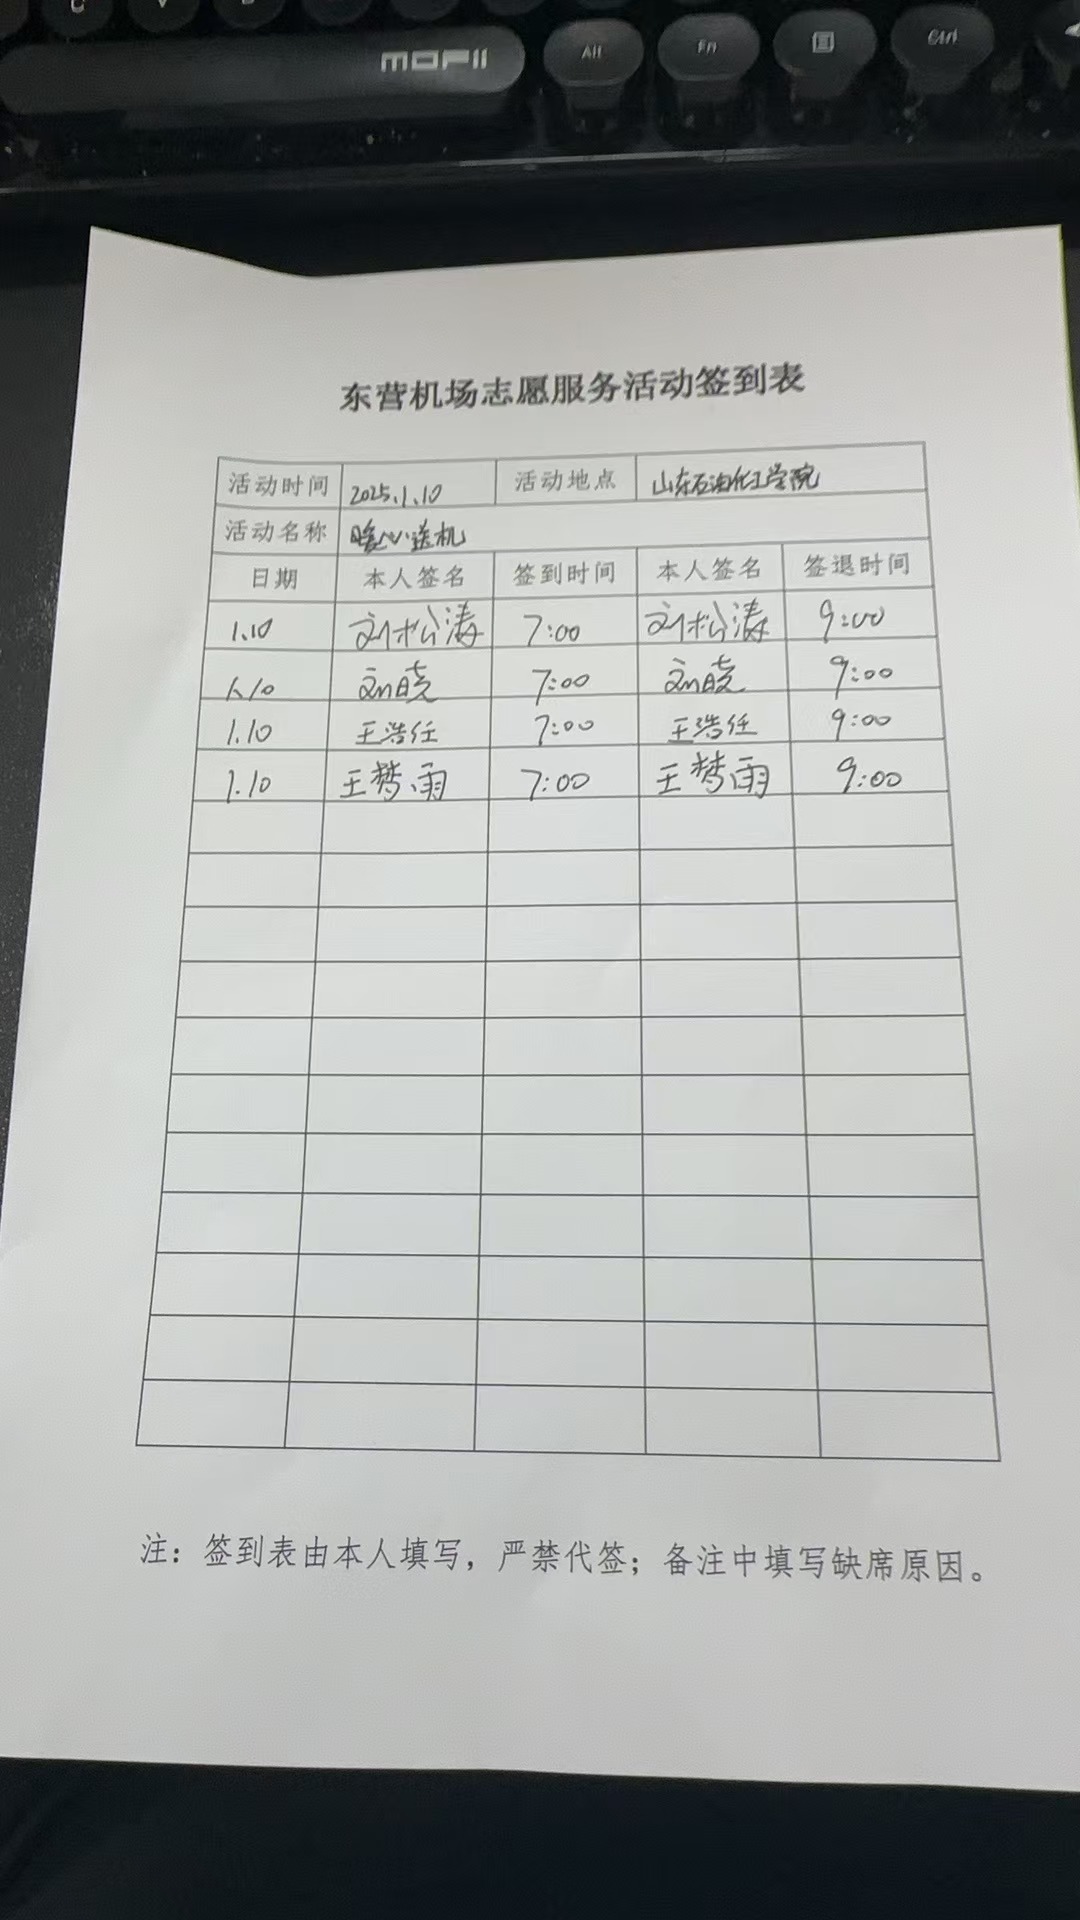 C V B
MOFII Alt Fn Ctrl
东营机场志愿服务活动签到表
活动时间 2025.1.10 活动地点 山东石油化工学院
活动名称 暖心送机
日期 本人签名 签到时间 本人签名 签退时间
1.10 刘松涛 7:00 刘松涛 9:00
1.10 刘晓 7:00 刘晓 9:00
1.10 王浩任 7:00 王浩任 9:00
1.10 王梦雨 7:00 王梦雨 9:00
注：签到表由本人填写，严禁代签；备注中填写缺席原因。